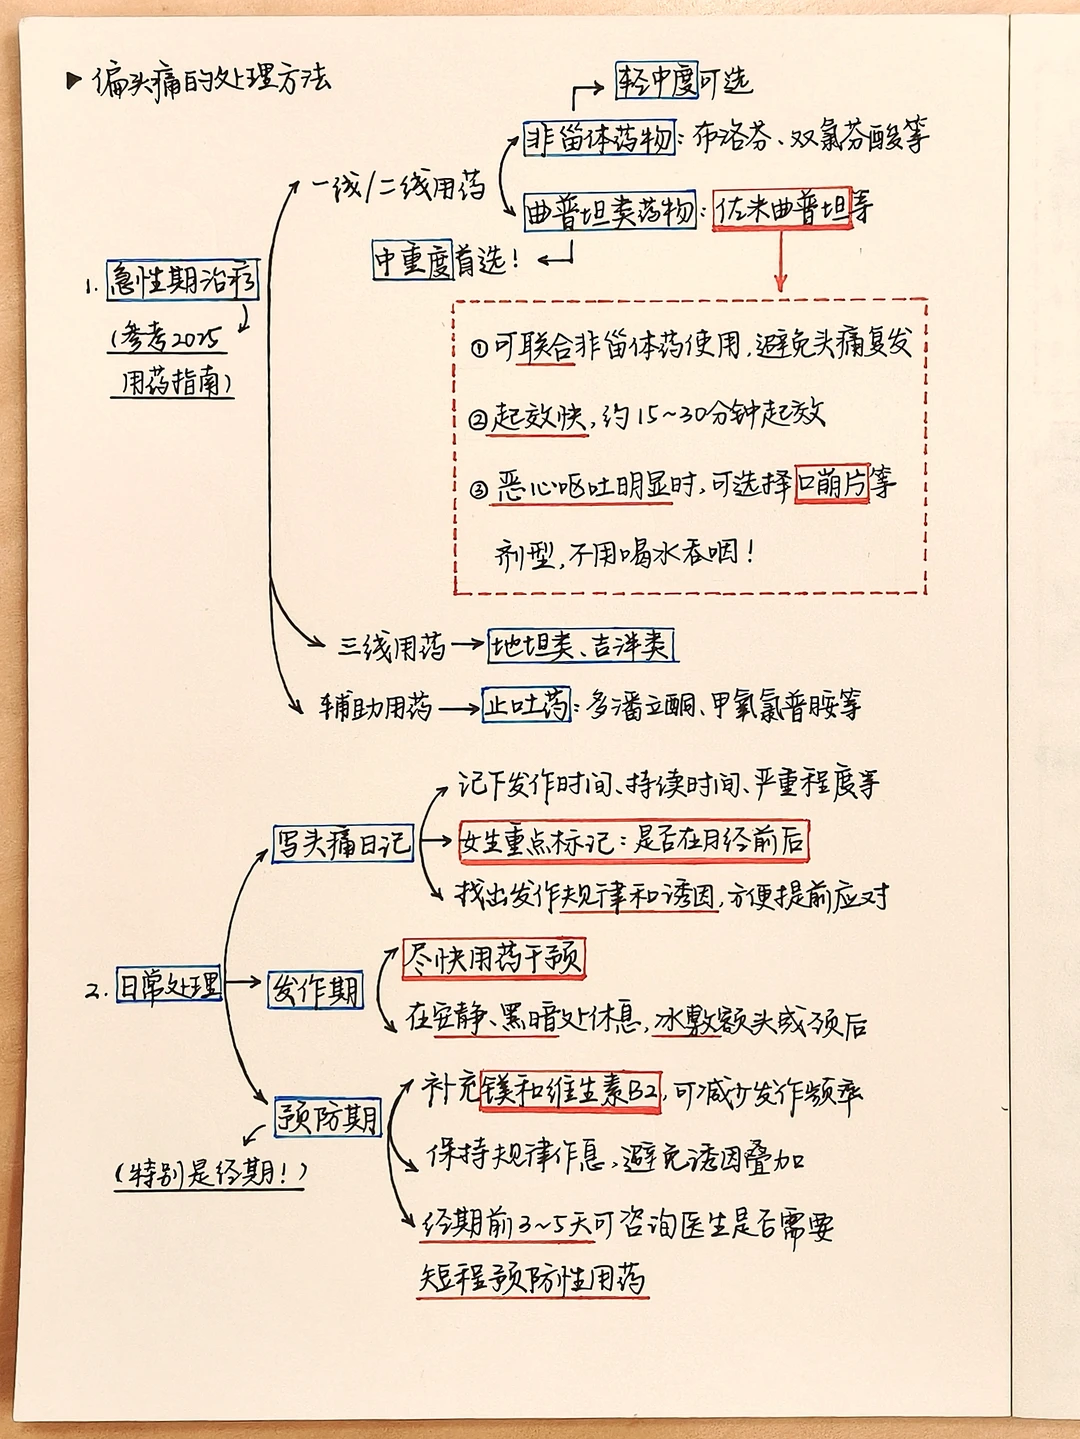 ▶偏头痛的处理方法
轻中度可选
非甾体药物：布洛芬、双氯芬酸等
一线/二线用药
曲普坦类药物：佐米曲普坦等
中重度首选！
1. 急性期治疗
(参考2025
用药指南)
①可联合非甾体药使用,避免头痛复发
②起效快,约15~30分钟起效
③恶心呕吐明显时,可选择口崩片等
剂型,不用喝水吞咽！
三线用药→地坦类、吉泮类
辅助用药→止吐药：多潘立酮、甲氧氯普胺等
记下发作时间、持续时间、严重程度等
写头痛日记
女生重点标记：是否在月经前后
找出发作规律和诱因,方便提前应对
尽快用药干预
2. 日常处理
发作期
在安静、黑暗处休息,冰敷额头或颈后
补充镁和维生素B2,可减少发作频率
预防期
(特别是经期！)
保持规律作息,避免诱因叠加
经期前3~5天可咨询医生是否需要
短程预防性用药